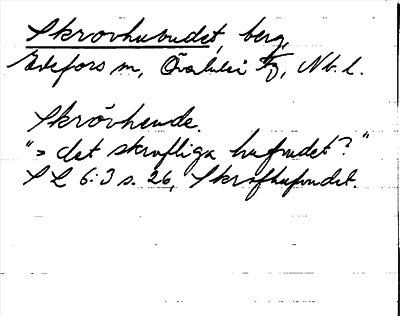 Skrovhuvudet, berg,
Edefors sn, Överluleå tg, Nb. l.
Skrövhende.
"> det skrofliga hufvudet?"
SL 6:3 s. 26, Skrofhufvudet.